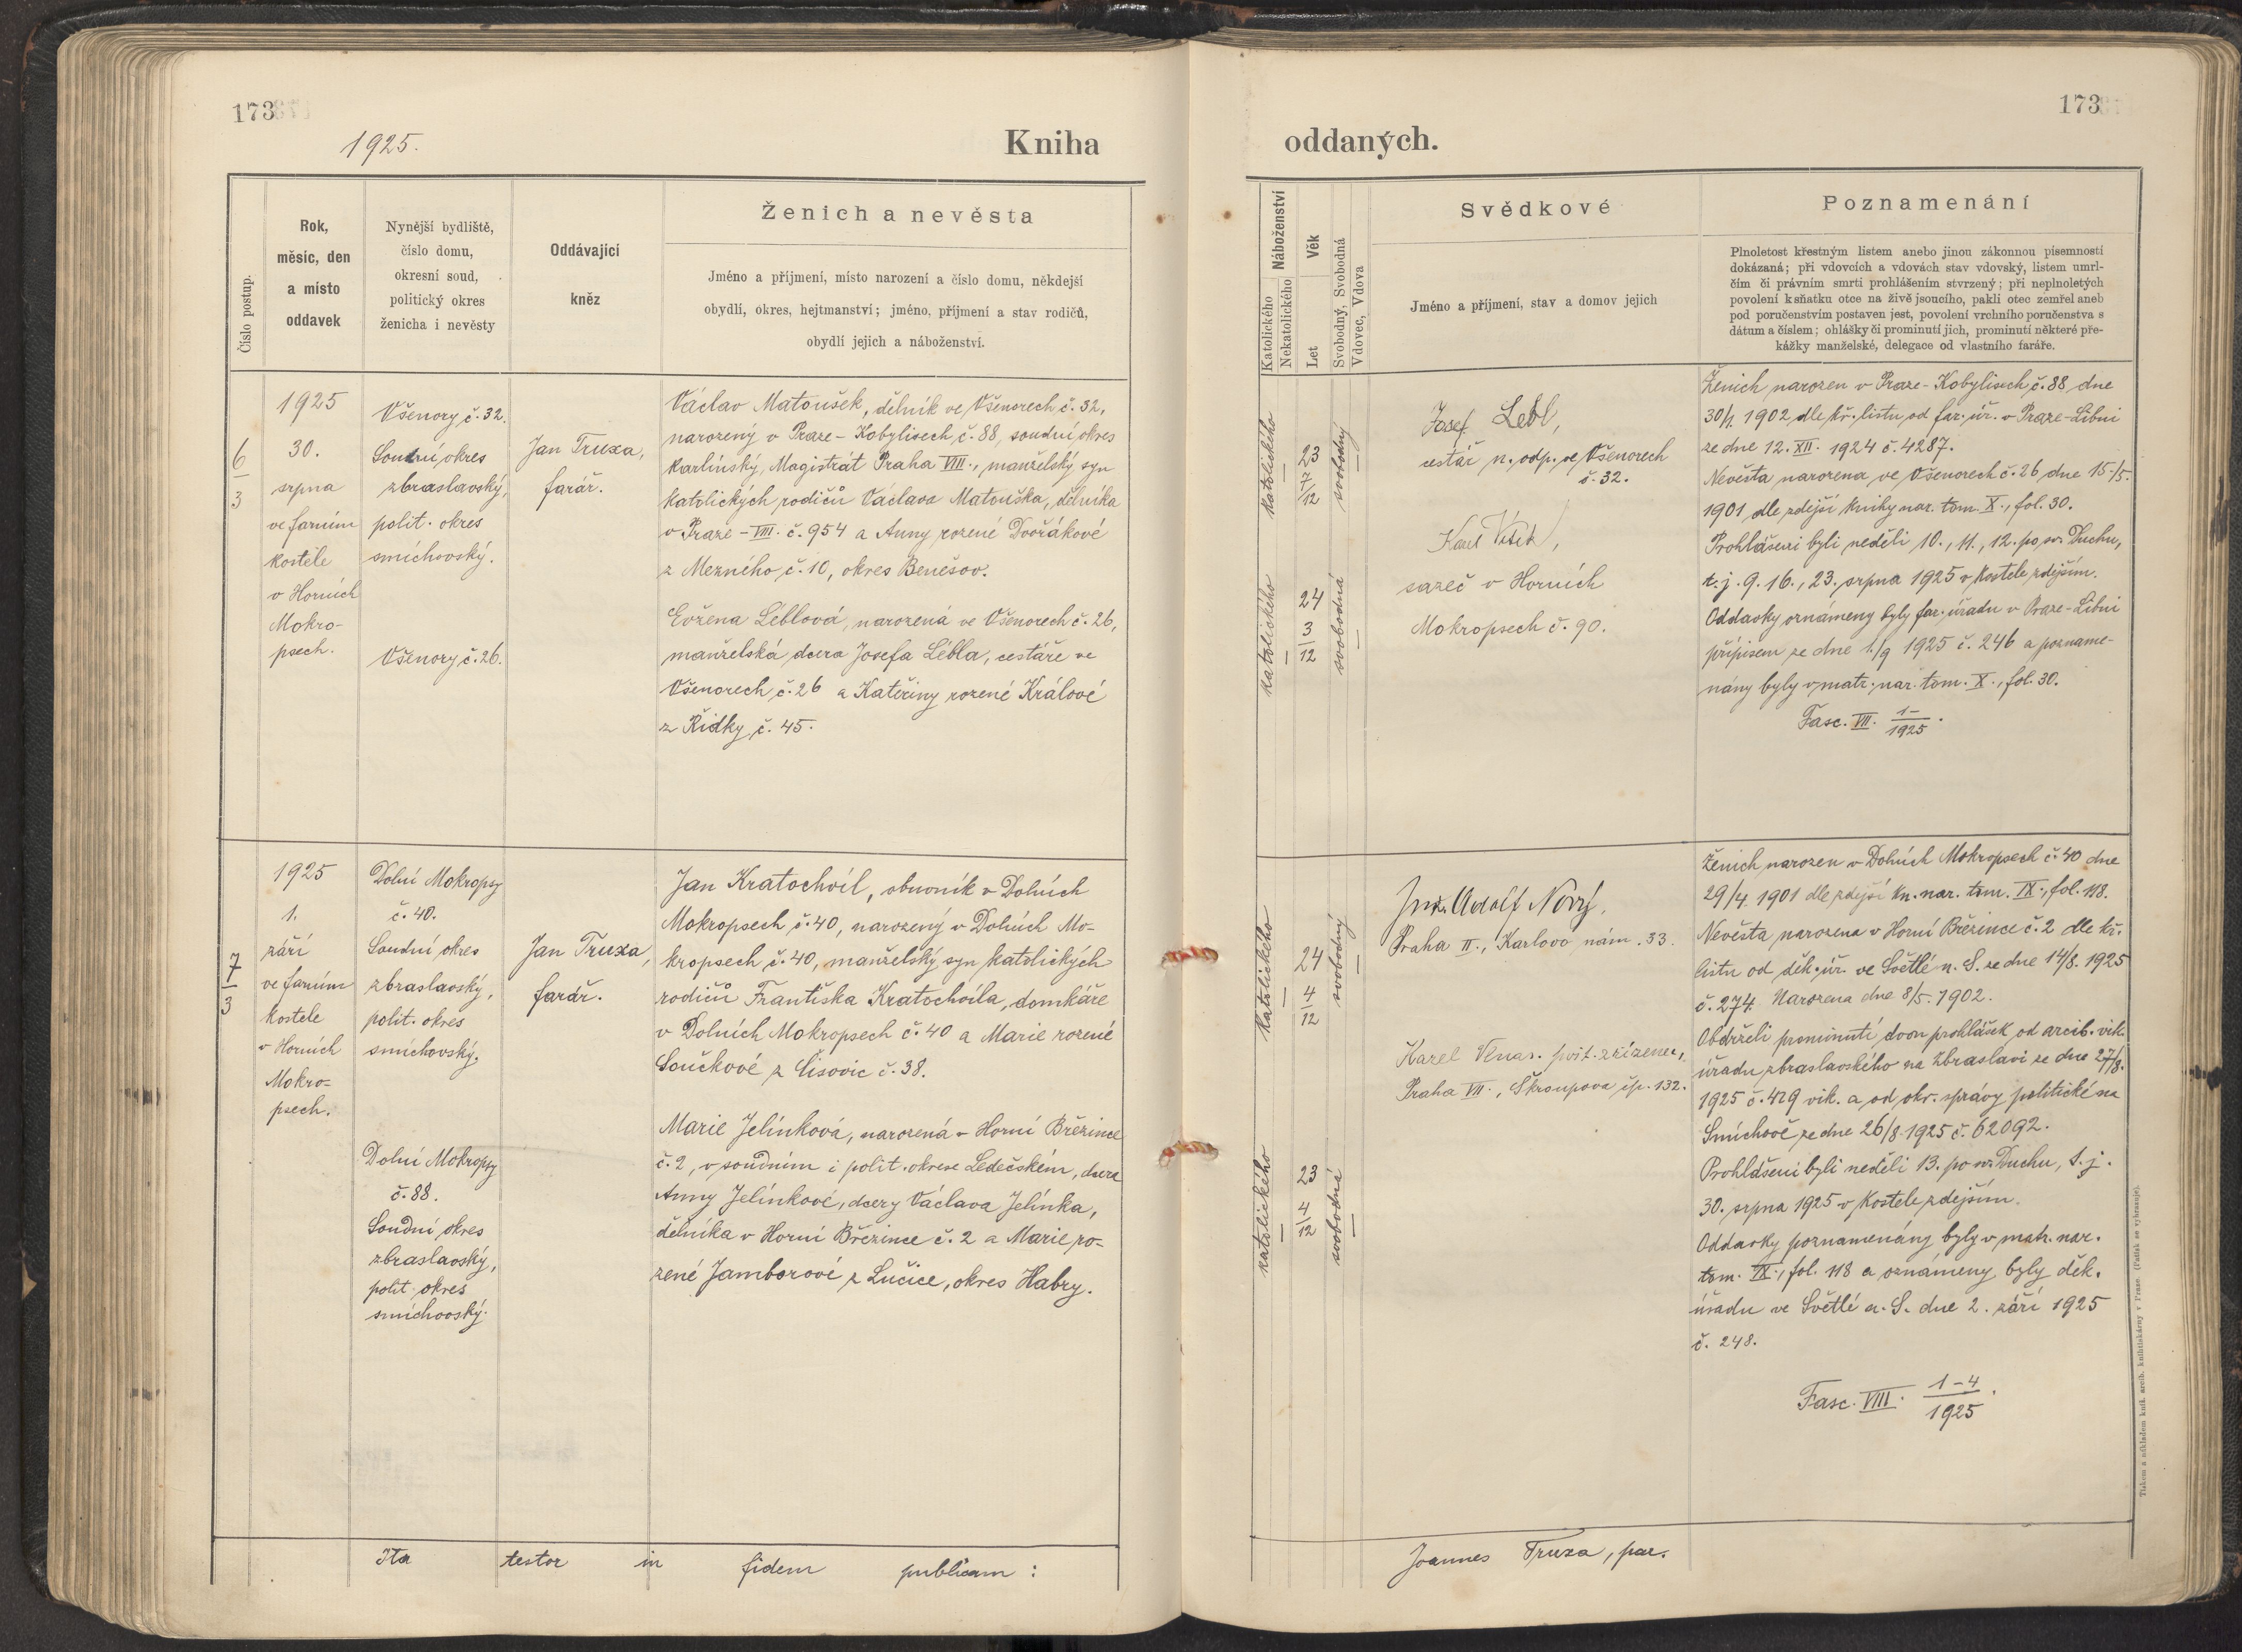 173
1925.
Kniha
Číslo postup.
Rok,
měsíc, den
a místo
oddavek
Nynější bydliště,
číslo domu,
okresní soud,
politický okres
ženicha i nevěsty
Oddávající
kněz
Ženich a nevěsta
Jméno a příjmení, místo narození a číslo domu, někdejší
obydlí, okres, hejtmanství; jméno, příjmení a stav rodičů,
obydlí jejich a náboženství.
6
3
1925
30.
srpna
ve farním
kostele
v Horních
Mokro-
psech.
Všenory č. 32.
Soudní okres
zbraslavský,
polit. okres
smíchovský.
Všenory č. 26.
Jan Truxa,
farář.
Václav Matoušek, dělník ve Všenorech č. 32,
narozený v Praze - Kobylisech č. 88, soudní okres
karlínský, Magistrát Praha VIII., manželský syn
katolických rodičů Václava Matouška, dělníka
v Praze - VIII. č. 954 a Anny rozené Dvořákové
z Mezného č. 10, okres Benešov.
Evžena Léblová, narozená ve Všenorech č. 26,
manželská dcera Josefa Lébla, cestáře ve
Všenorech č. 26 a Kateřiny rozené Králové
z Řidky č. 45.
7
3
1925
1.
září
ve farním
kostele
v Horních
Mokro-
psech.
Dolní Mokropsy
č. 40.
Soudní okres
zbraslavský,
polit. okres
smíchovský.
Dolní Mokropsy
č. 88.
Soudní okres
zbraslavský,
polit. okres
smíchovský.
Jan Truxa,
farář.
Jan Kratochvíl, obuvník v Dolních
Mokropsech č. 40, narozený v Dolních Mo-
kropsech č. 40, manželský syn katolických
rodičů Františka Kratochvíla, domkáře
v Dolních Mokropsech č. 40 a Marie rozené
Součkové z Lisovic č. 38.
Marie Jelínková, narozená v Horní Březince
č. 2, v soudním i polit. okrese Ledečském, dcera
Anny Jelínkové, dcery Václava Jelínka,
dělníka v Horní Březince č. 2 a Marie ro-
zené Jamborové z Lučice, okres Habry.
Ita testor in fidem publicam :
173
oddaných.
Náboženství
Katolického
Nekatolického
Věk
Let
Svobodný, Svobodná
Vdovec, Vdova
Svědkové
Jméno a příjmení, stav a domov jejich
Poznamenání
Plnoletost křestným listem anebo jinou zákonnou písemností
dokázaná; při vdovcích a vdovách stav vdovský, listem umrl-
čím či právním smrti prohlášením stvrzený; při neplnoletých
povolení k sňatku otce na živě jsoucího, pakli otec zemřel aneb
pod poručenstvím postaven jest, povolení vrchního poručenstva s
dátum a číslem; ohlášky či prominutí jich, prominutí některé pře-
kážky manželské, delegace od vlastního faráře.
katolického
23
7
12
svobodný
katolického
24
3
12
svobodná
Josef Lebl,
cestář n. odp. ve Všenorech
č. 32.
Karel
sazeč v Horních
Mokropsech č. 90.
Ženich narozen v Praze - Kobylisech č. 88 dne
30/1. 1902 dle kř. listu od far. úř. v Praze - Libni
ze dne 12. XII. 1924 č. 4287.
Nevěsta narozena ve Všenorech č. 26 dne 15/5.
1901 dle zdejší knihy nar. tom. X., fol. 30.
Prohlášeni byli neděli 10., 11., 12. po sv. Duchu,
t. j. 9. 16., 23. srpna 1925 v kostele zdejším.
Oddavky oznámeny byly far. úřadu v Praze - Libni
přípisem ze dne 1./9 1925 č. 246 a pozname-
nány byly v matr. nar. tom. X., fol. 30.
Fasc. VII. 1-
1925.
katolického
24
4
12
svobodný
katolického
23
4
12
svobodná
Adolf Nový,
Praha II., Karlovo nám. 33.
Karel zřízenec,
Praha VII., Škroupova čp. 132.
Ženich narozen v Dolních Mokropsech č. 40 dne
29/4. 1901 dle zdejší kn. nar. tom. IX., fol. 118.
Nevěsta narozena v Horní Březince č. 2 dle kř.
listu od děk. úř. ve Světlé n. S. ze dne 14/8. 1925
č. 274. Narozena dne 8/5. 1902.
Obdrželi prominutí dvou prohlášek od arcib. vik.
úřadu zbraslavského na Zbraslavi ze dne 27/8.
1925 č. 429 vik. a od okr. správy politické na
Smíchově ze dne 26/8. 1925 č. 62092.
Prohlášeni byli neděli 13. po sv. Duchu, t. j.
30. srpna 1925 v kostele zdejším.
Oddavky poznamenány byly v matr. nar.
tom. IX., fol. 118 a oznámeny byly děk.
úřadu ve Světlé n. S. dne 2. září 1925
č. 248.
Fasc. VIII. 1-4
1925.
Joannes Truxa, par.
Tiskem a nákladem kníž. arcib. knihtiskárny v Praze. (Patisk se vyhrazuje).